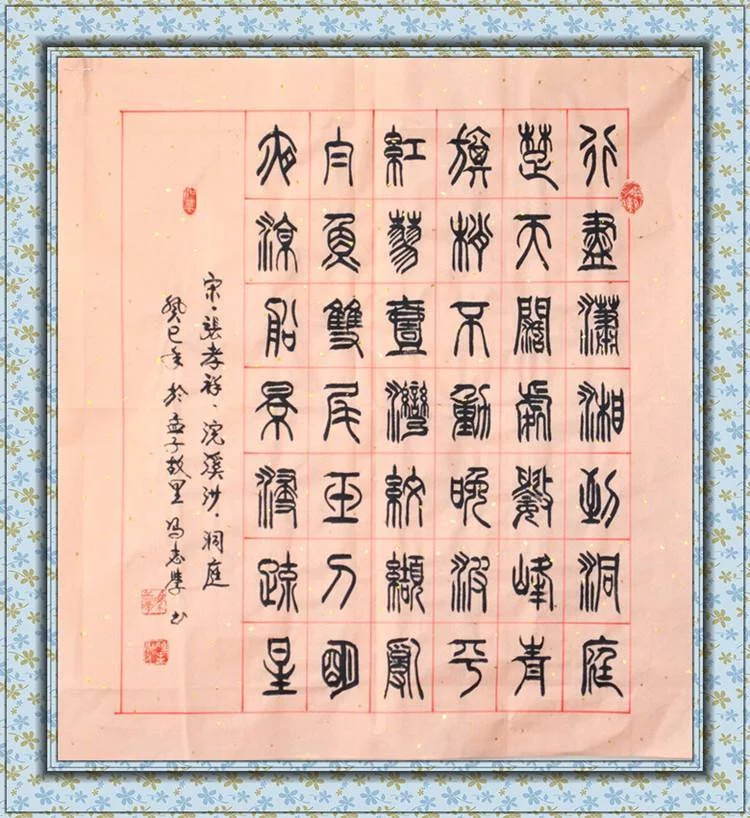 行盡瀟湘到洞庭
楚天闊處數峰青
旗梢不動晚波平
紅蓼壹灣紋纈亂
白魚雙尾玉刀明
夜涼船景浸疏星
宋·張孝祥·浣溪沙·洞庭
癸巳年於孟子故里冯志學书